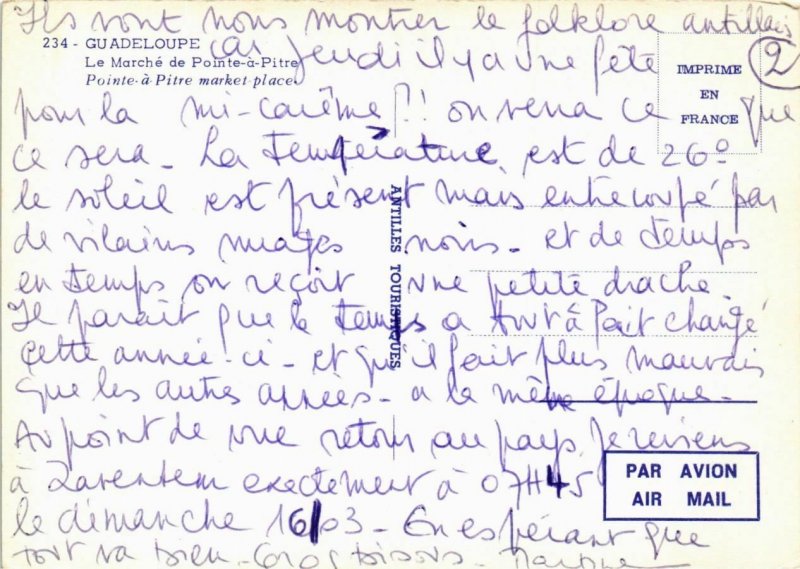 Ils vont nous montrer le folklore antillais
234 - GUADELOUPE
Le Marché de Pointe-à-Pitre
Pointe-à-Pitre market place
car jeudi il y a une fête
2
IMPRIME
EN
FRANCE
pour la mi-carême !! on verra ce que
ce sera - La température est de 26°
le soleil est présent mais entrecoupé par
de vilains nuages noirs - et de temps
en temps on reçoit une petite drache.
Il parait que le temps a tout à fait changé
cette année-ci - et qu'il fait plus mauvais
que les autres années - a la même époque -
Au point de vue retour au pays, je reviens
à Zaventem exactement à 07H45
le dimanche 16/03 - En espérant que
tout va bien - Gros bisous - Martine
ANTILLES TOURISTIQUES
PAR AVION
AIR MAIL